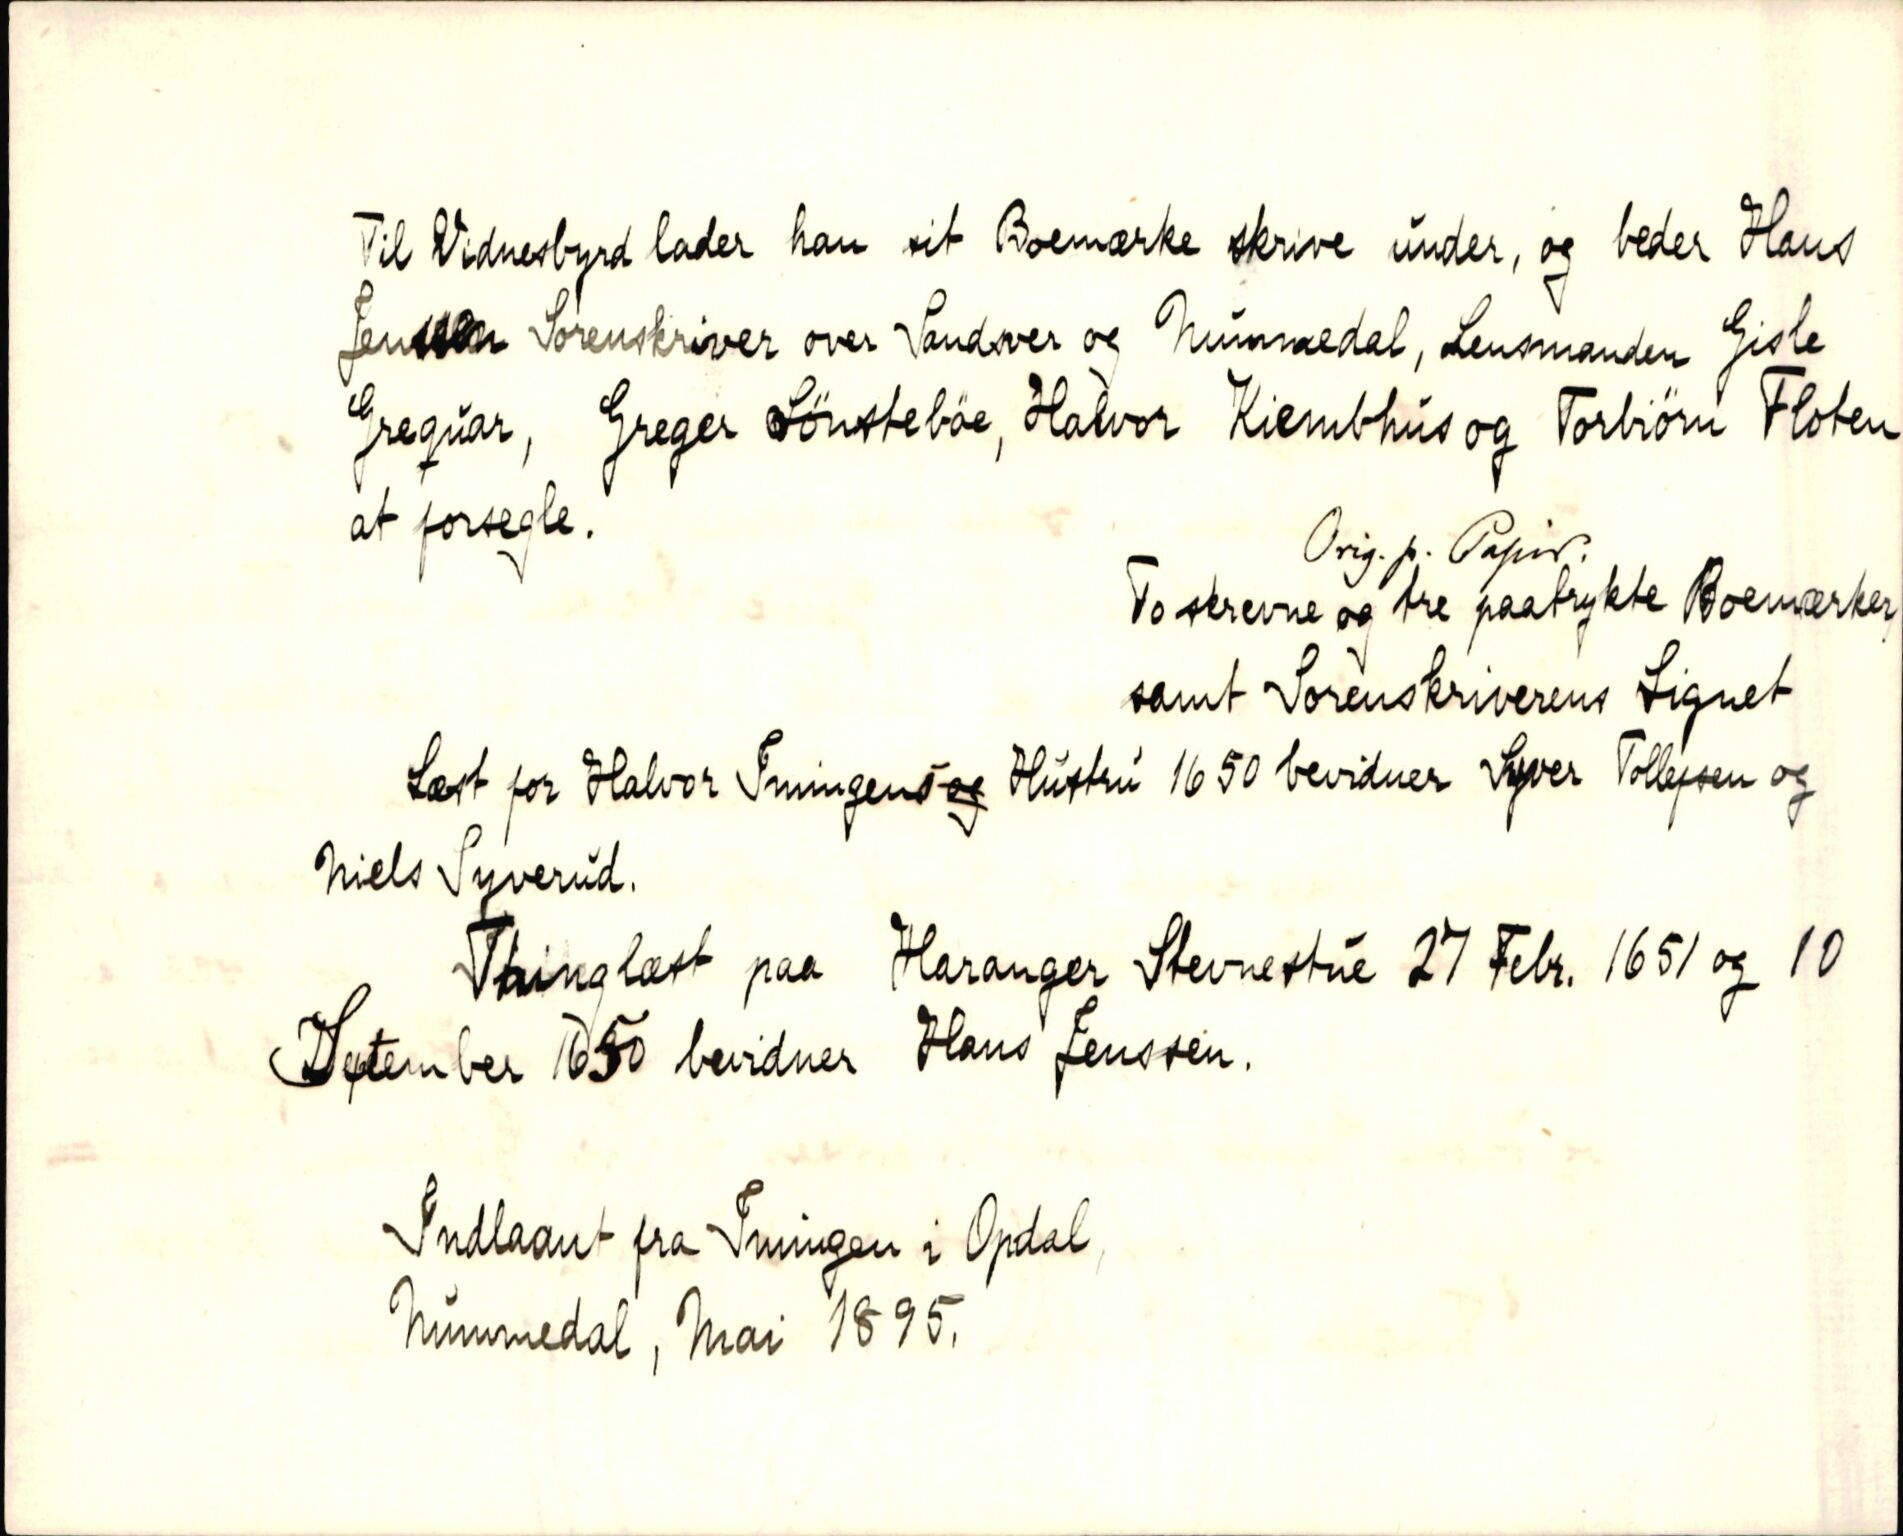 Til Vidnesbyrd lader han sit Boemærke skrive under, og beder Hans
Jenssen Sorenskriver over Sandsver og Nummedal, Lensmanden Gisle
Greguar, Greger Lönsteböe, Halvor Kiembhus og Torbiörn Floten
at forsegle.
Orig. p. Papir.
To skrevne og tre paatrykte Boemærker,
samt Sorenskriverens Signet
Læst for Halvor Imingens og Hustru 1650 bevidner Syver Tollefsen og
Niels Syverud.
Thinglæst paa Haranger Stevnestue 27 Febr. 1651 og 10
September 1650 bevidner Hans Jenssen.
Indlaant fra Imingen i Opdal,
Nummedal, Mai 1895.